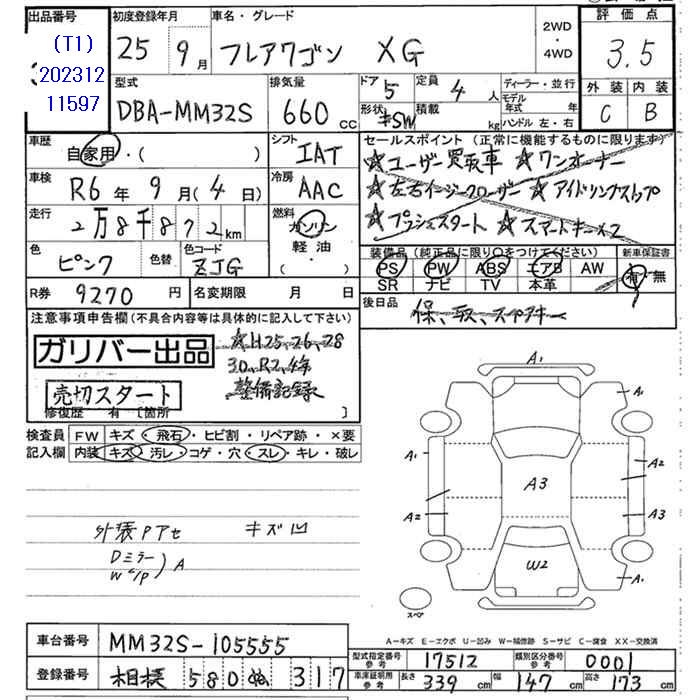 出品番号 初度登録年月 車名・グレード 2WD・4WD 評価点
(T1)
202312
11597
25年 9月 フレアワゴン XG 3.5
型式 排気量 ドア 5 定員 4人 ディーラー・並行 外装 内装
モデル年式 年
DBA-MM32S 660cc 形状 積載 kg ハンドル 左・右 C B
車歴 シフト セールスポイント (正常に機能するものに限ります)
自家用・( ) IAT ☆ユーザー買取車 ☆ワンオーナー
車検 冷房 ☆左右イージークローザー ☆アイドリングストップ
R6年 9月(4日) AAC ☆プッシュスタート ☆スマートキー×2
走行 燃料
2万8千872km ガソリン
軽油
・( )
色 色替 色コード 装備品 (純正品に限り○をつけてください) 新車保証書
ピンク ZJG PS PW ABS エアB AW 有・無
SR ナビ TV 本革
R券 9270円 名変期限 月 日 後日品
保、取、スペアキー
注意事項申告欄 (不具合内容等は具体的に記入して下さい)
ガリバー出品 ☆H25.26.28
30.R2.4年
売切スタート 整備記録
修復歴 有 [箇所 ]
検査員 FW キズ・飛石・ヒビ割・リペア跡・×要
記入欄 内装 キズ・汚レ・コゲ・穴・スレ・キレ・破レ
外装Pアセ キズ凹
Dミラー
A
A1
A1
A1
A2
A3
A2
A3
W2
A1
スペア
A-キズ E-エクボ U-凹み W-補修跡 S-サビ C-腐食 XX-交換済
車台番号 MM32S-105555
登録番号 相模 580 ぬ 317
型式指定番号 参考 17512 類別区分番号 参考 0001
車庫証明用 参考 長さ 339cm 幅 147cm 高さ 173cm